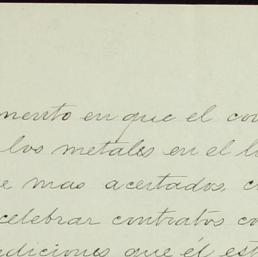 mento en que el con
los metales en el l
e mas acertados, c
celebrar contratos co
diciones que él est